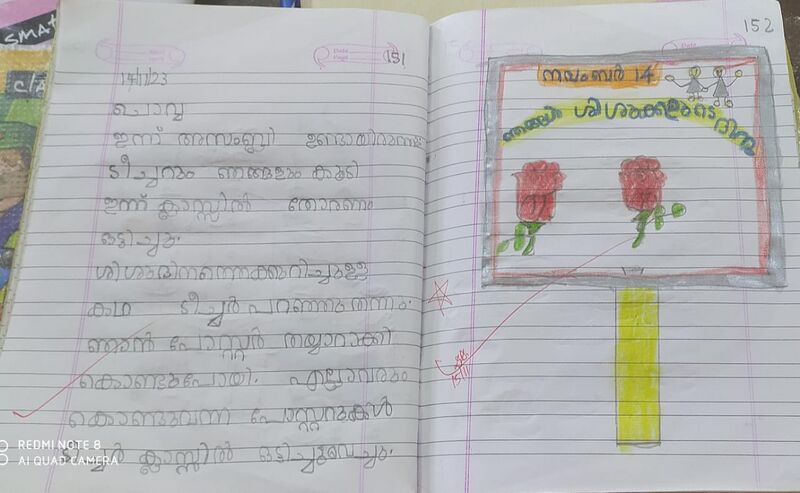 SMA
cla
151
14/11/23
ചൊവ്വ
ഇന്ന് അസംബ്ലി ഉണ്ടായിരുന്നു
ടീച്ചറും ഞങ്ങളും കൂടി
ഇന്ന് ക്ലാസ്സിൽ തോരണം
ഒട്ടിച്ചു.
ശിശുദിനത്തെക്കുറിച്ചുള്ള
കഥ ടീച്ചർ പറഞ്ഞു തന്നു.
ഞാൻ പോസ്റ്റർ തയ്യാറാക്കി
കൊണ്ടുപോയി. എല്ലാവരും
കൊണ്ടുവന്ന പോസ്റ്ററുകൾ
ടീച്ചർ ക്ലാസ്സിൽ ഒട്ടിച്ചുവെച്ചു.
152
നവംബർ 14
ഞങ്ങൾ ശിശുക്കളുടെ ദിനം
15/11
REDMI NOTE 8
AI QUAD CAMERA